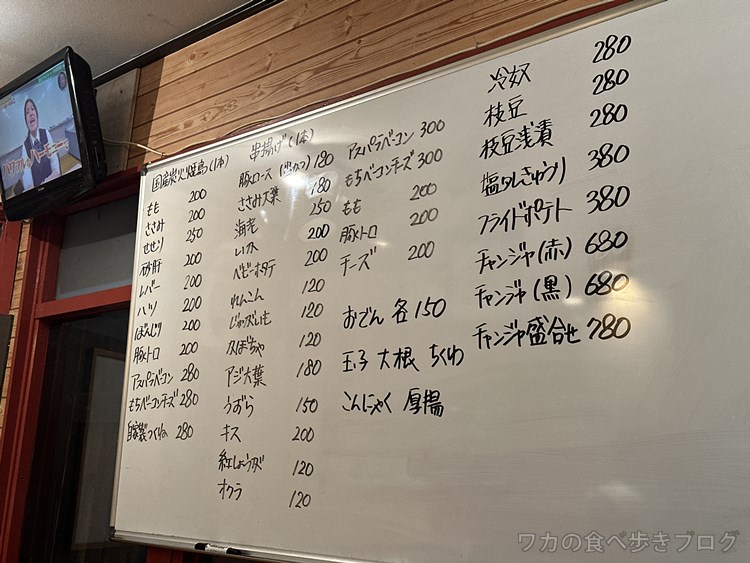 国産炭火焼鳥(1本)
もも 200
ささみ 200
せせり 250
砂肝 200
レバー 200
ハツ 200
ぼんじり 200
豚トロ 200
アスパラベーコン 280
もちベーコンチーズ 280
自家製つくね 280
串揚げ(1本)
豚ロース(串かつ) 180
ささみ大葉 180
海老 250
いか 200
ベビーホタテ 200
れんこん 120
じゃがいも 120
かぼちゃ 120
アジ大葉 180
うずら 150
キス 200
紅しょうが 120
オクラ 120
アスパラベーコン 300
もちベーコンチーズ 300
もも 200
豚トロ 200
チーズ 200
おでん 各150
玉子 大根 ちくわ
こんにゃく 厚揚
冷奴 280
枝豆 280
枝豆浅漬 280
塩ダレきゅうり 380
フライドポテト 380
チャンジャ(赤) 680
チャンジャ(黒) 680
チャンジャ盛合せ 780
ワカの食べ歩きブログ